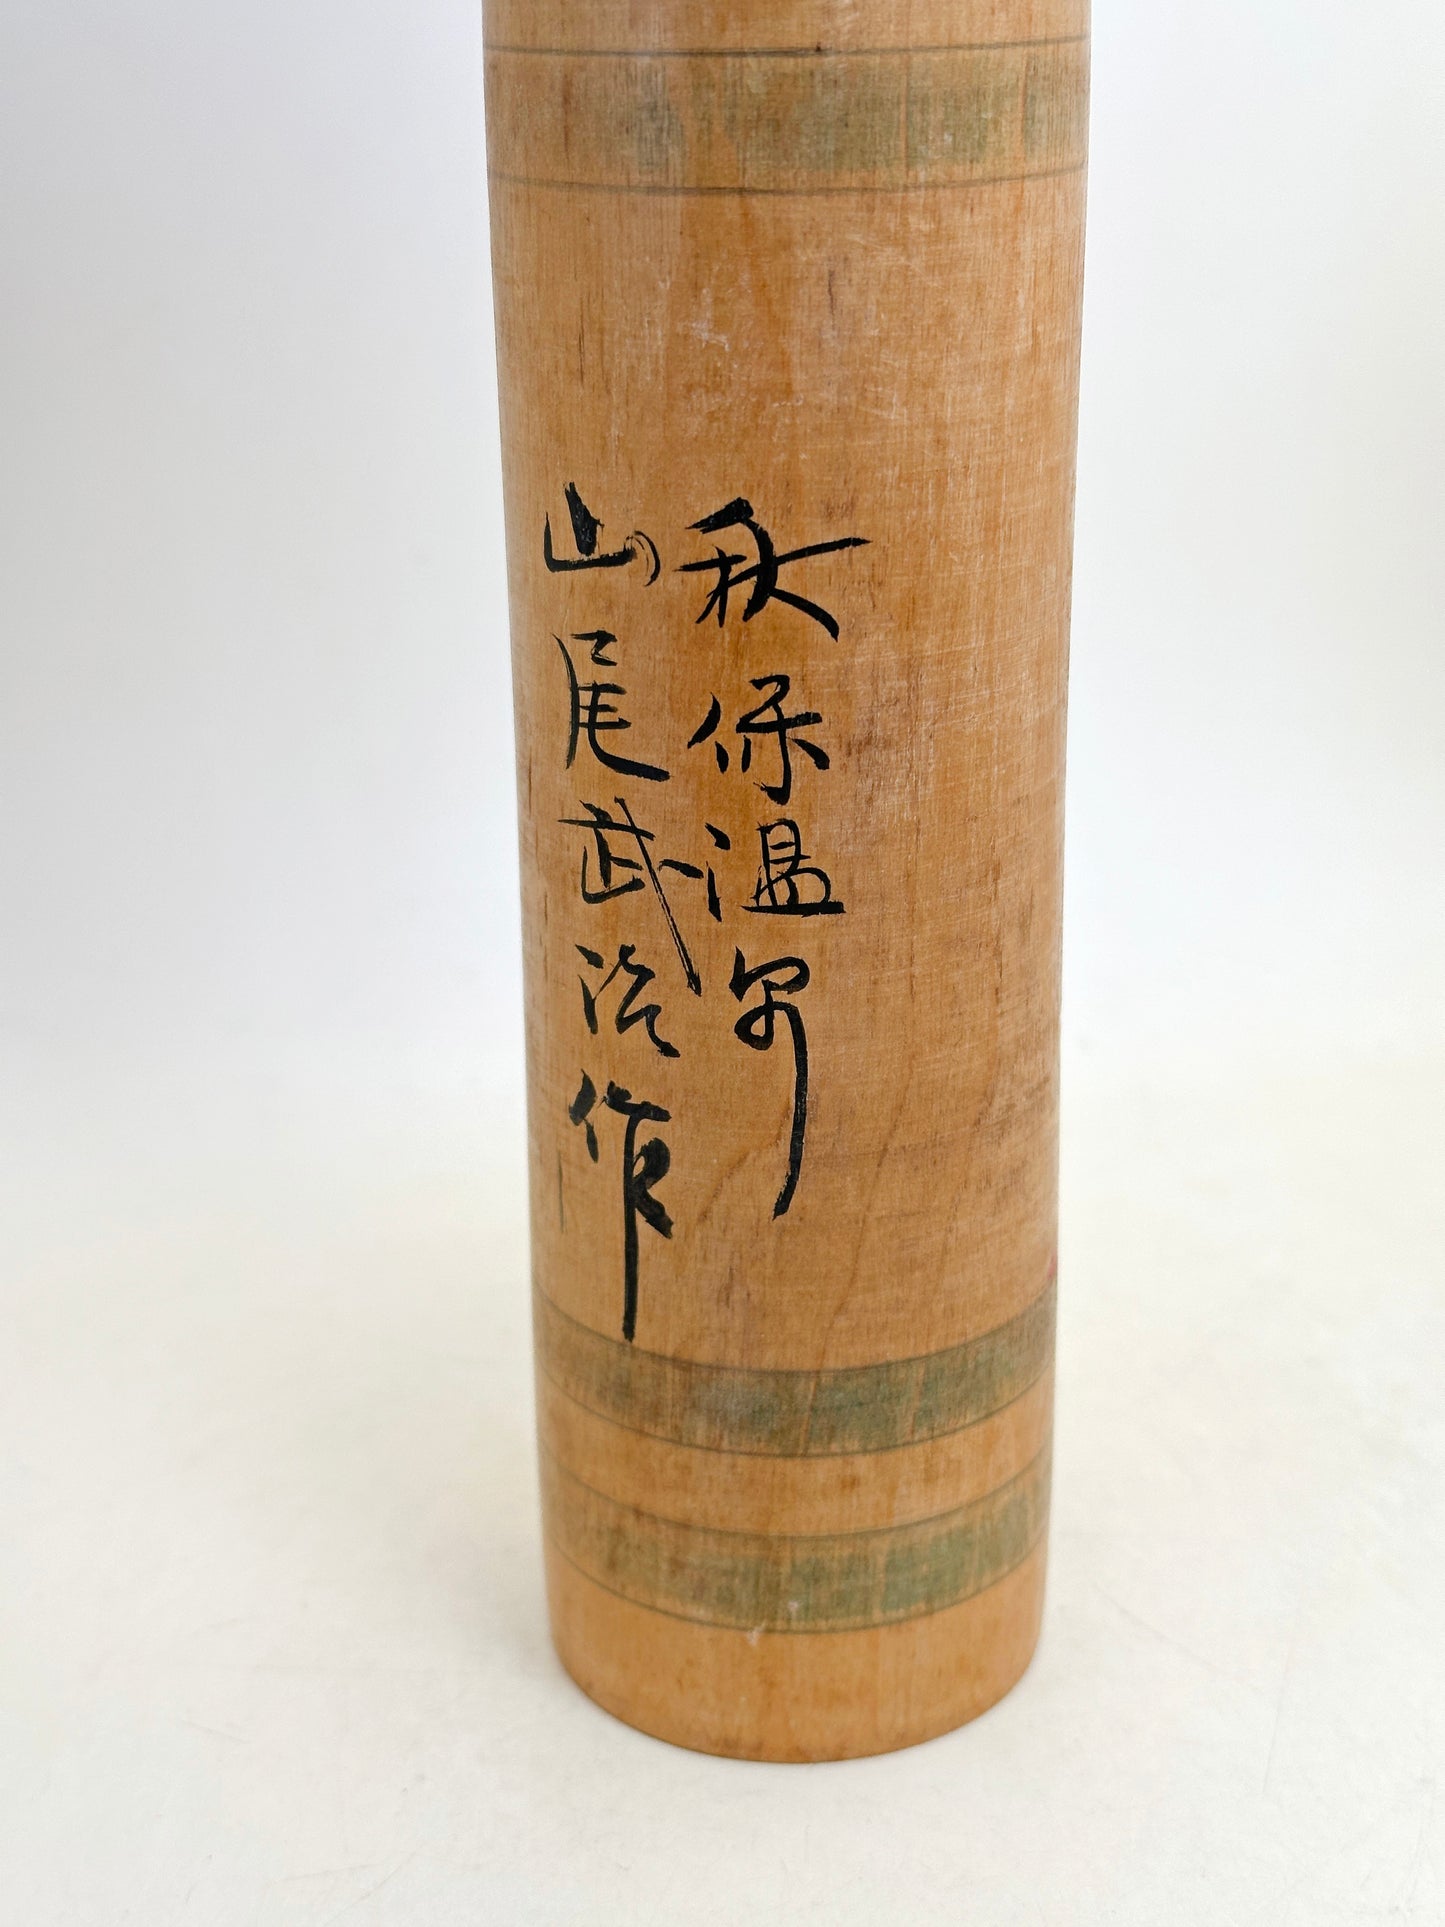 秋保温泉
山尾武治作